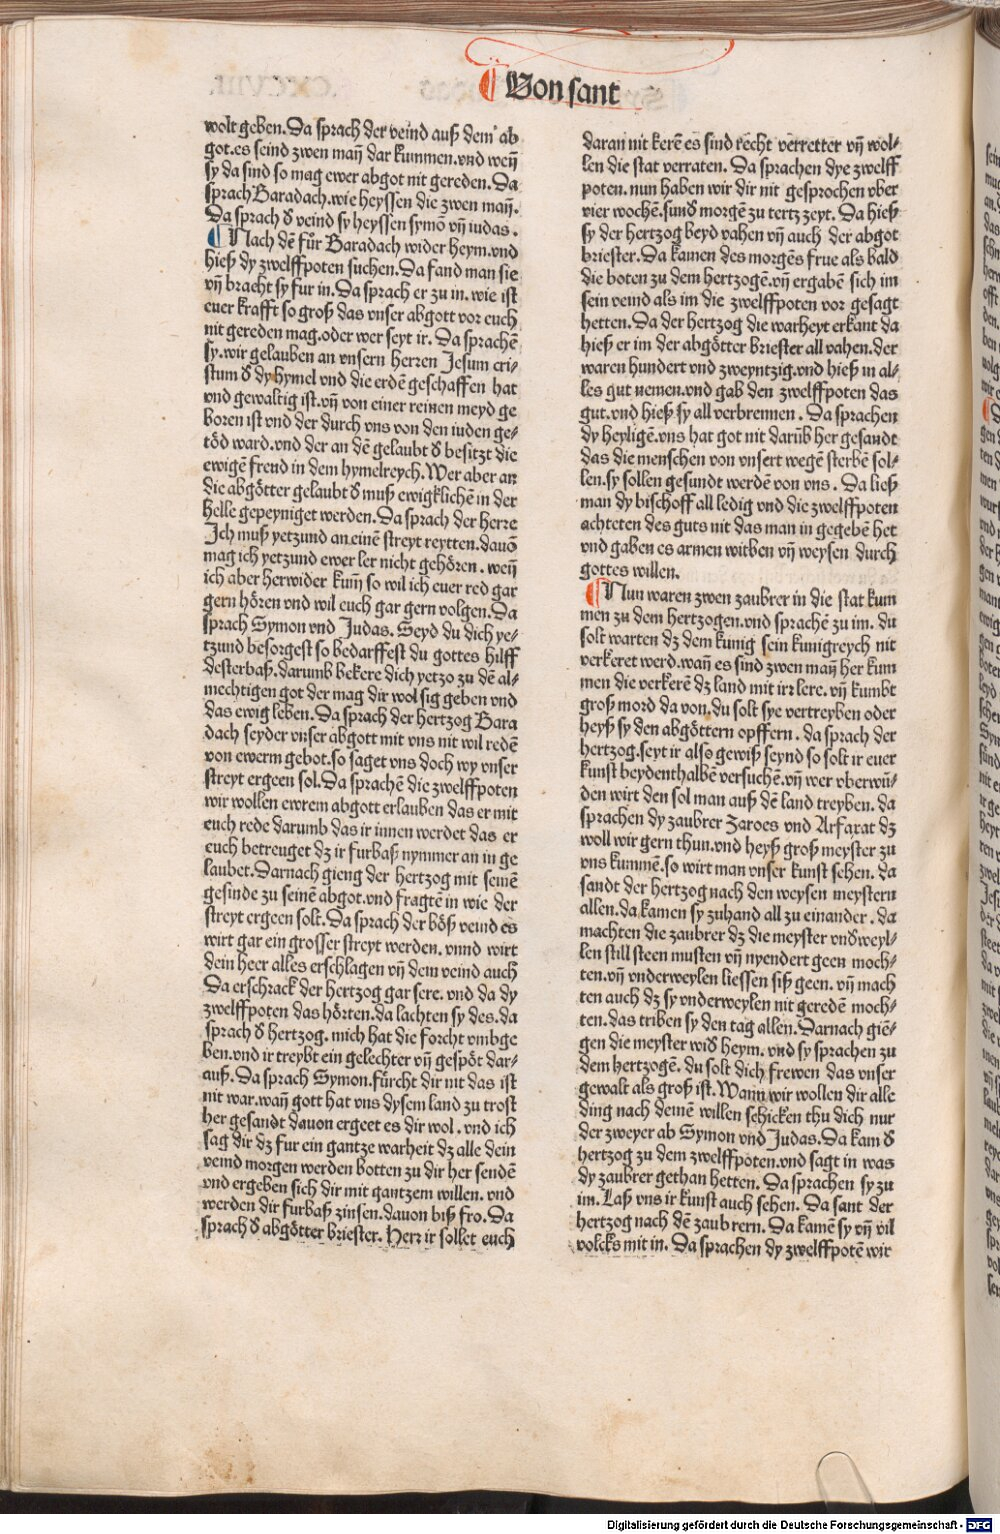 ¶ Von sant
wolt geben. Da sprach der veind auß dem ab
got. es seind zwen mañ dar kummen. vnd weñ
sy da sind so mag ewer abgot nit gereden. Da
sprach Baradach. wie heyssen die zwen mañ.
Da sprach ď veind sy heyssen symō vñ iudas.
¶ Nach dē fůr Baradach wider heym. vnd
hieß dy zwelffpoten suchen. Da fand man sie
vñ bracht sy fur in. Da sprach er zu in. wie ist
euer krafft so groß das vnser abgott vor euch
nit gereden mag. oder wer seyt ir. Da sprachē
sy. wir gelauben an vnsern herren Jesum cri⸗
stum ď dy hymel vnd die erdē geschaffen hat
vnd gewaltig ist. vñ von einer reinen meyd ge
boren ist vnd der durch vns von den iuden ge⸗
tőd ward. vnd der an dē gelaubt ď besitzt die
ewigē freud in dem hymelreych. Wer aber an
die abgőtter gelaubt ď muß ewigklichē in der
helle gepeyniget werden. Da sprach der herre
Ich muß yetzund an einē streyt reytten. dauō
mag ich yetzund ewer ler nicht gehőren. weñ
ich aber herwider kuṁ so wil ich euer red gar
gern hőren vnd wil euch gar gern volgen. Da
sprach Symon vnd Judas. Seyd du dich ye⸗
tzund besorgest so bedarffest du gottes hilff
desterbaß. darumb bekere dich yetzo zu dē al⸗
mechtigen got der mag dir wol sig geben vnd
das ewig leben. Da sprach der hertzog Bara
dach seyder vnser abgott mit vns nit wil redē
von ewerm gebot. so saget vns doch wy vnser
streyt ergeen sol. Da sprachē die zwelffpoten
wir wollen ewrem abgott erlauben das er mit
euch rede darumb das ir innen werdet das er
euch betreuget dz ir furbaß nymmer an in ge
laubet. Darnach gieng der hertzog mit seinē
gesinde zu seinē abgot. vnd fragtē in wie der
streyt ergeen solt. Da sprach der bőß veind es
wirt gar ein grosser streyt werden. vnnd wirt
dein heer alles erschlagen vñ dem veind auch
Da erschrack der hertzog gar sere. vnd da dy
zwelffpoten das hőrten. da lachten sy des. da
sprach ď hertzog. mich hat die forcht vmbge
ben. vnd ir treybt ein gelechter vñ gespőt dar⸗
auß. Da sprach Symon. fűrcht dir nit das ist
nit war. wañ gott hat vns dysem land zu trost
her gesandt dauon ergeet es dir wol. vnd ich
sag dir dz fur ein gantze warheit dz alle dein
veind morgen werden botten zu dir her sendē
vnd ergeben sich dir mit gantzem willen. vnd
werden dir furbaß zinsen. dauon biß fro. Da
sprach ď abgőtter briester. Herr ir sollet euch
daran nit kerē es sind recht verretter vñ wol⸗
len die stat verraten. Da sprachen dye zwelff
poten. nun haben wir dir nit gesprochen vber
vier wochē. sunď morgē zu tertz zeyt. Da hieß
sy der hertzog beyd vahen vñ auch der abgot
briester. Da kamen des morgēs frue als bald
die boten zu dem hertzogē. vñ ergabē sich im
sein veind als im die zwelffpoten vor gesagt
hetten. Da der hertzog die warheyt erkant da
hieß er im der abgőtter briester all vahen. der
waren hundert vnd zweyntzig. vnd hieß in al⸗
les gut nemen. vnd gab den zwelffpoten das
gut. vnd hieß sy all verbrennen. Da sprachen
dy heyligē. vns hat got nit darűb her gesandt
das die menschen von vnsert wegē sterbē sol⸗
len. sy sollen gesundt werdē von vns. Da ließ
man dy bischoff all ledig vnd die zwelffpoten
achteten des guts nit das man in gegebē het
vnd gaben es armen witben vñ weysen durch
gottes willen.
¶ Nun waren zwen zaubrer in die stat kum
men zu dem hertzogen. vnd sprachē zu im. du
solt warten dz dem kunig sein kunigreych nit
verkeret werd. wañ es sind zwen mañ her kum
men die verkerē dz land mit irr lere. vñ kumbt
groß mord da von. du solt sye vertreyben oder
heyß sy den abgőttern opffern. da sprach der
hertzog. seyt ir alss gewiß seynd so solt ir euer
kunst beydenthalbē versuchē. vñ wer vberwű⸗
den wirt den sol man auß dē land treyben. da
sprachen dy zaubrer Zaroes vnd Arfaxat dz
woll wir gern thun. vnd heyß groß meyster zu
vns kummē. so wirt man vnser kunst sehen. da
sandt der hertzog nach den weysen meystern
allen. da kamen sy zuhand all zu einander. da
machten die zaubrer dz die meyster vnďweyl⸗
len still steen musten vñ nyendert geen moch⸗
ten. vñ vnderweylen liessen siß geen. vñ mach
ten auch dz sy vnderweylen nit geredē moch⸗
ten. das triben sy den tag allen. Darnach giē⸗
gen die meyster wiď heym. vnd sy sprachen zu
dem hertzogē. du solt dich frewen das vnser
gewalt als groß ist. Wann wir wollen dir alle
ding nach deinē willen schicken thu dich nur
der zweyer ab Symon vnd Judas. Da kam ď
hertzog zu dem zwelffpoten. vnd sagt in was
dy zaubrer gethan hetten. Da sprachen sy zu
im. Laß vns ir kunst auch sehen. Da sant der
hertzog nach dē zaubrern. Da kamē sy vñ vil
volcks mit in. Da sprachen dy zwelffpotē wir
Digitalisierung gefördert durch die Deutsche Forschungsgemeinschaft - DFG